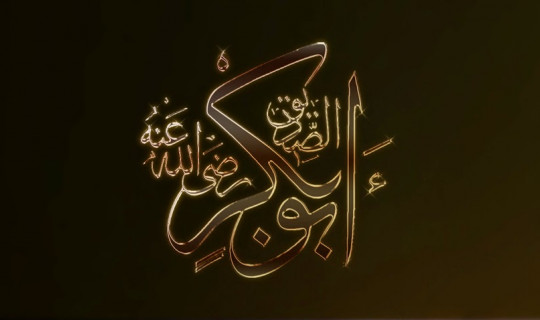 أبو بكر
الصديق
رضي الله عنه